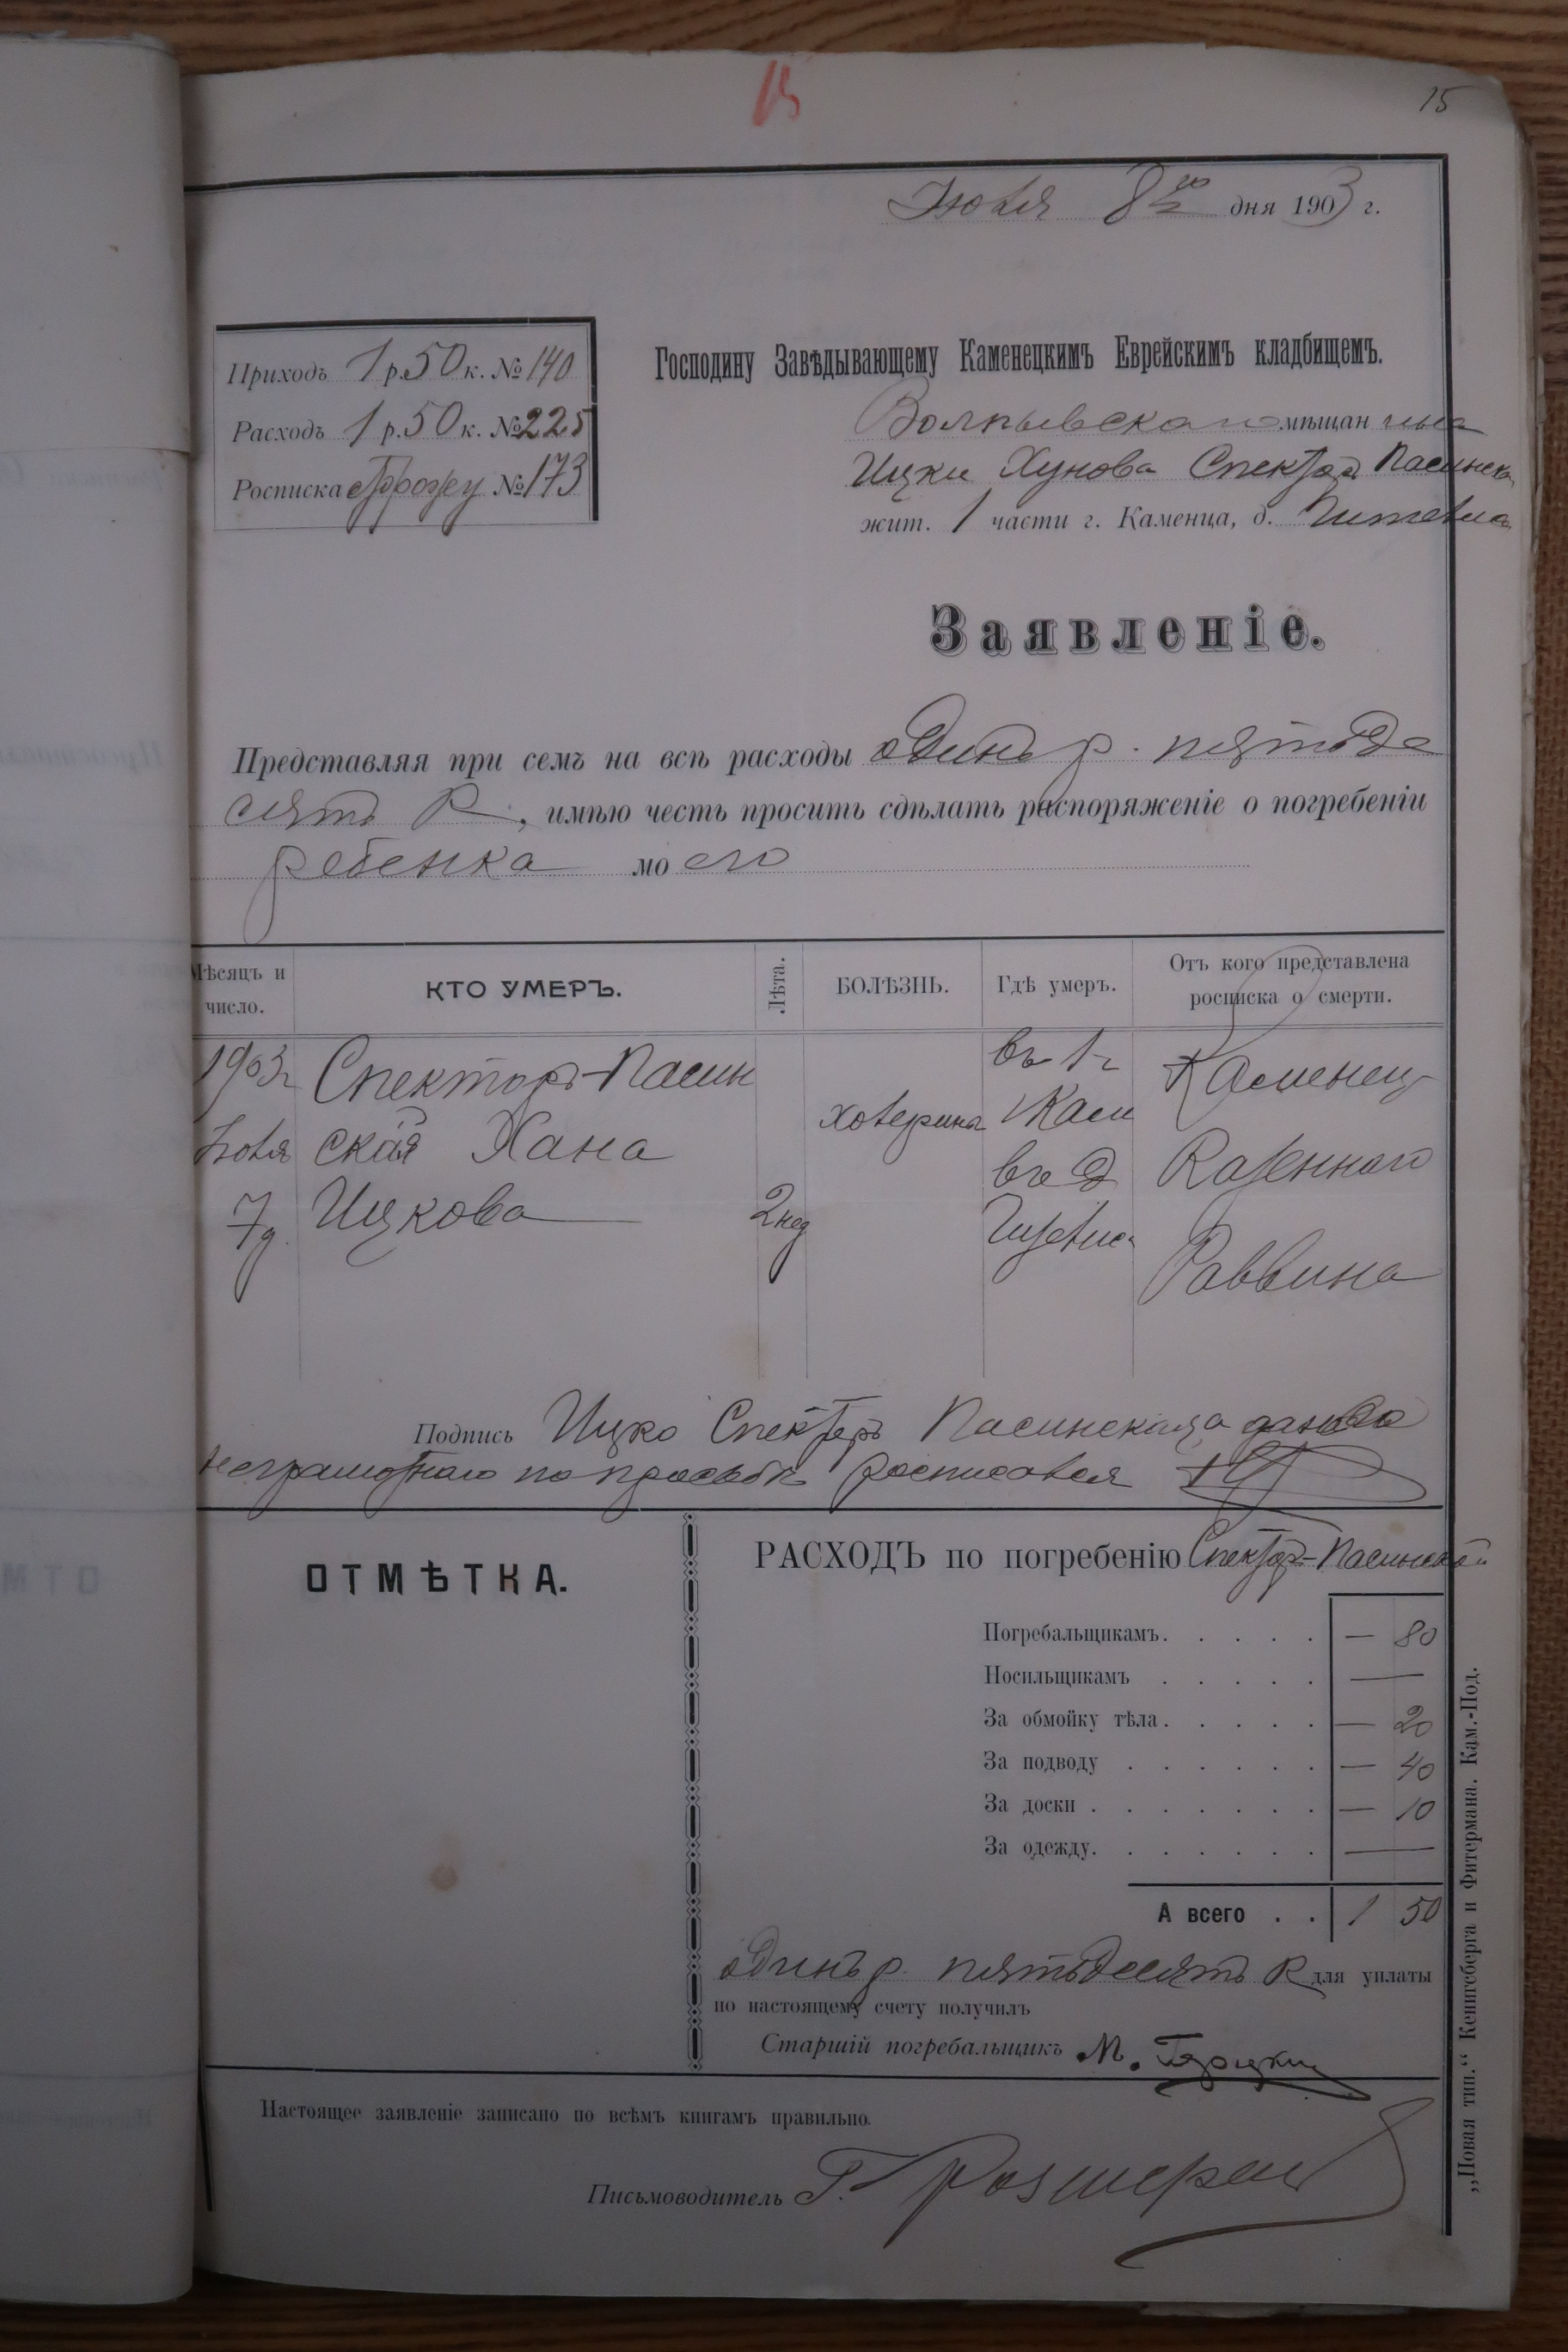 15
15
Июля 8го дня 1903 г.
Приходъ 1 р. 50 к. № 140
Расходъ 1 р. 50 к. № 225
Росписка № 173
Господину Завѣдывающему Каменецкимъ Еврейскимъ кладбищемъ.
мѣщанина
Ицки Хунова Спектора Пасинска
жит. 1 части г. Каменца, д.
Заявленіе.
Представляя при семъ на всѣ расходы одинъ р. пятьде
сятъ к, имѣю честь просить сдѣлать распоряженіе о погребеніи
ребенка моего
Мѣсяцъ и число. КТО УМЕРЪ. Лѣта. БОЛѢЗНЬ. Гдѣ умеръ. Отъ кого представлена росписка о смерти.
1903г Спекторъ-Пасин въ 1 ч Каменец
Іюля ская Хана холерина Кам Казеннаго
7 д. Ицкова 2 нед въ д Раввина
Подпись Ицко Спекторъ Пасинской а за него
неграмотнаго по просьбѣ росписался
ОТМѢТКА.
РАСХОДЪ по погребенію Спекторъ-Пасинской
Погребальщикамъ. . . . . — 80
Носильщикамъ . . . . . —
За обмойку тѣла. . . . . — 20
За подводу . . . . . . — 40
За доски . . . . . . . — 10
За одежду. . . . . . . —
А всего . . 1 50
одинъ р. пятьдесятъ к для уплаты
по настоящему счету получилъ
Старшій погребальщикъ М.
Настоящее заявленіе записано по всѣмъ книгамъ правильно.
Письмоводитель Г.
„Новая тип.“ Кенигсберга и Фитермана. Кам.-Под.